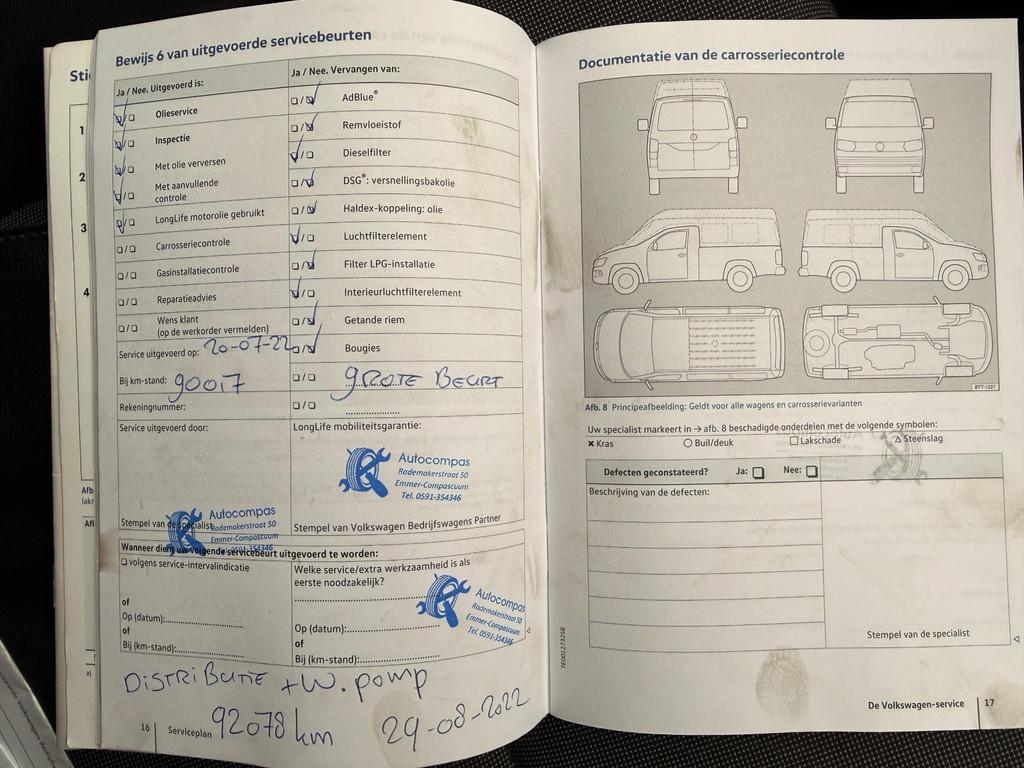 Sti
1
2
3
4
Afb
lakr
Afl
Bewijs 6 van uitgevoerde servicebeurten
Ja / Nee. Uitgevoerd is:
Olieservice
Inspectie
Met olie verversen
Met aanvullende
controle
LongLife motorolie gebruikt
Carrosseriecontrole
Gasinstallatiecontrole
Reparatieadvies
Wens klant
(op de werkorder vermelden)
Service uitgevoerd op: 20-07-22
Bij km-stand: 90017
Rekeningnummer:
Service uitgevoerd door:
Stempel van de specialist
Autocompas
Rademakerstraat 50
Emmer-Compascuum
Tel. 0591-354346
Ja / Nee. Vervangen van:
AdBlue®
Remvloeistof
Dieselfilter
DSG®: versnellingsbakolie
Haldex-koppeling: olie
Luchtfilterelement
Filter LPG-installatie
Interieurluchtfilterelement
Getande riem
Bougies
GROTE BEURT
LongLife mobiliteitsgarantie:
Autocompas
Rademakerstraat 50
Emmer-Compascuum
Tel. 0591-354346
Stempel van Volkswagen Bedrijfswagens Partner
Wanneer dient uw volgende servicebeurt uitgevoerd te worden:
volgens service-intervalindicatie
of
Op (datum):
of
Bij (km-stand):
Welke service/extra werkzaamheid is als
eerste noodzakelijk?
Autocompas
Rademakerstraat 50
Emmer-Compascuum
Tel. 0591-354346
Op (datum):
of
Bij (km-stand):
DISTRIBUTIE + W. pomp
92078 km 29-08-2022
16 Serviceplan
Documentatie van de carrosseriecontrole
BTT-1227
Afb. 8 Principeafbeelding: Geldt voor alle wagens en carrosserievarianten
Uw specialist markeert in → afb. 8 beschadigde onderdelen met de volgende symbolen:
× Kras ○ Buil/deuk □ Lakschade △ Steenslag
Defecten geconstateerd? Ja: Nee:
Beschrijving van de defecten:
Stempel van de specialist
7E0012732SB
De Volkswagen-service 17